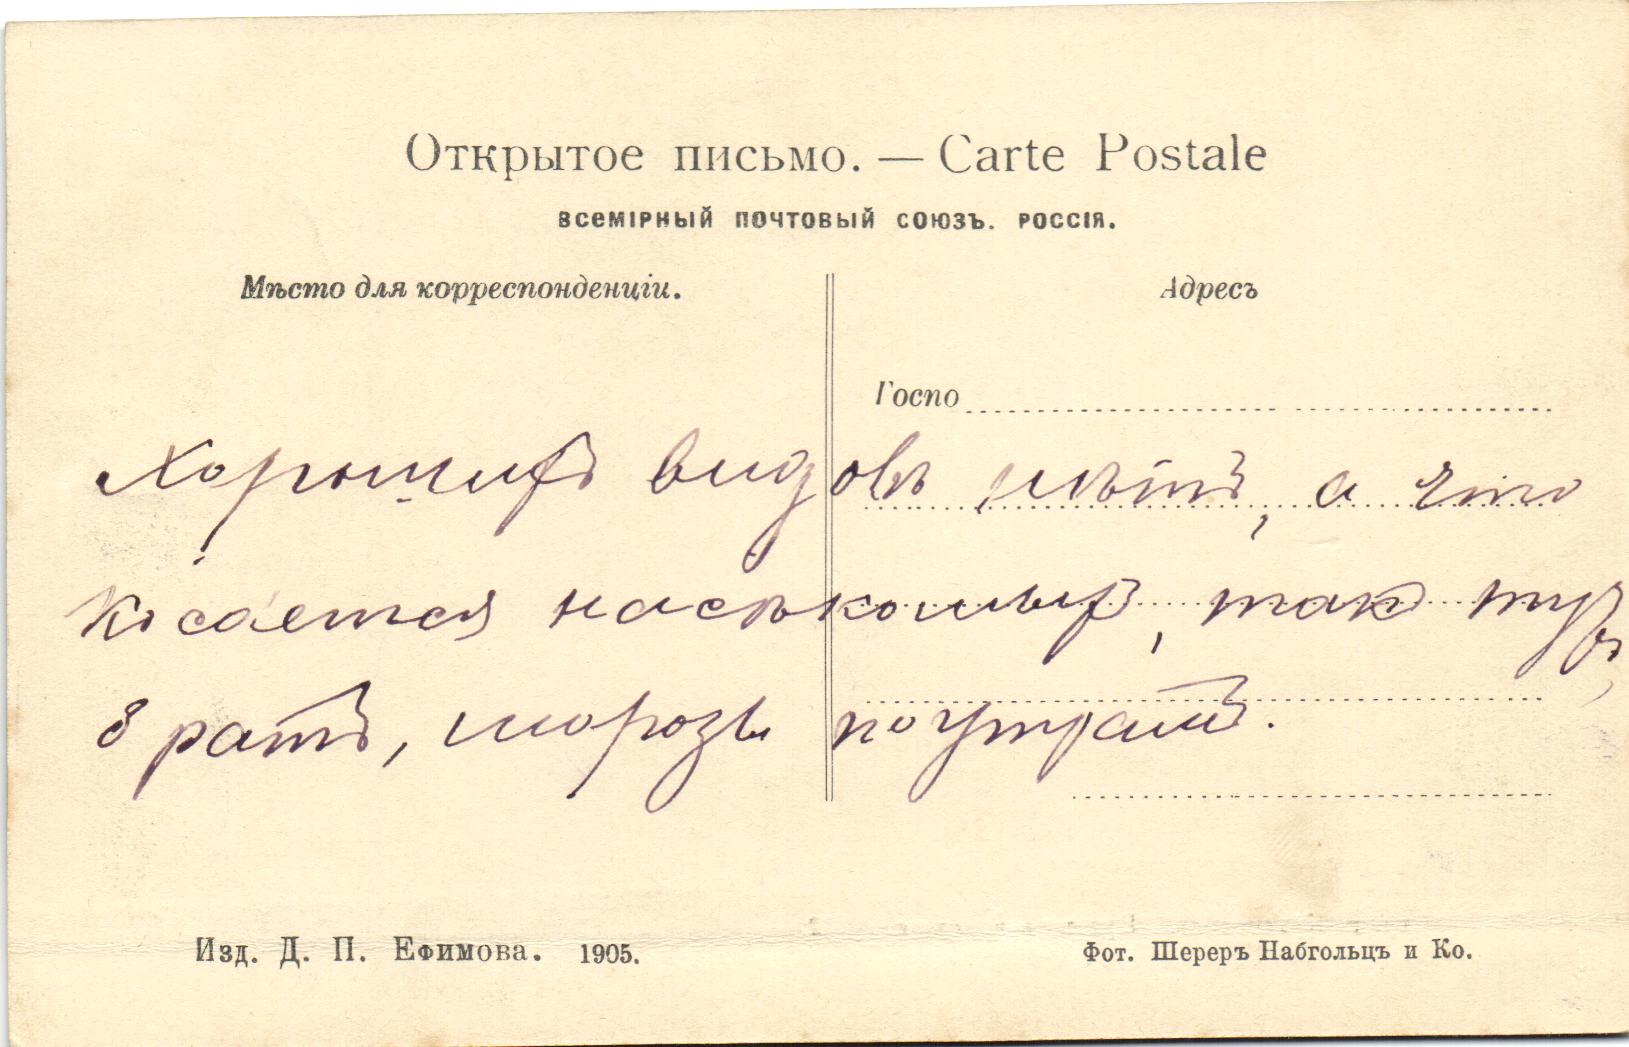 Открытое письмо. — Carte Postale
ВСЕМІРНЫЙ ПОЧТОВЫЙ СОЮЗЪ. РОССІЯ.
Мѣсто для корреспонденціи.
Адресъ
Госпо
Хорошихъ видовъ нѣтъ, а что
касается насѣкомыхъ, такъ тутъ,
братъ, морозы по утрамъ.
Изд. Д. П. Ефимова. 1905.
Фот. Шереръ Набгольцъ и Ко.